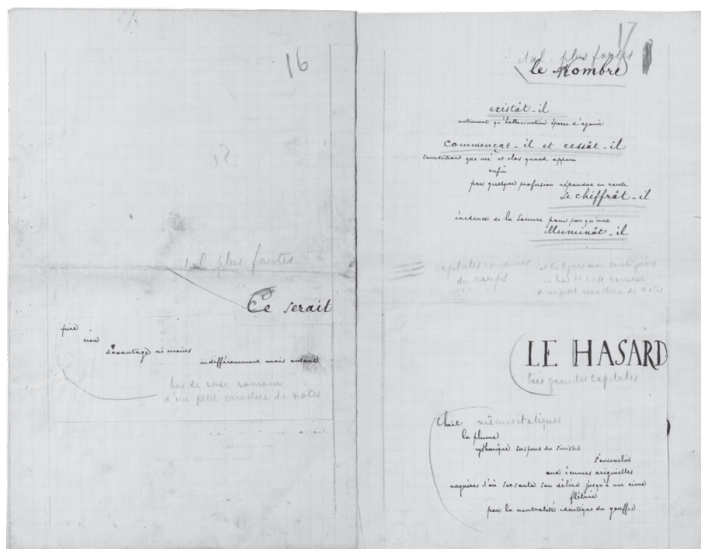 16
ital. plus fortes
Ce serait
pire
non
davantage ni moins
indifféremment mais autant
bas de casse romain
d'un petit caractère de notes
17
ital. plus fortes
le Nombre
existât-il
autrement qu'hallucination éparse d'agonie
commençât-il et cessât-il
sourdant que nié et clos quand apparu
enfin
par quelque profusion répandue en rareté
se chiffrât-il
évidence de la somme pour peu qu'une
illuminât-il
capitales romaines
du corps
LE HASARD
très grandes capitales
Choit
la plume
rythmique suspens du sinistre
s'ensevelir
aux écumes originelles
naguères d'où sursauta son délire jusqu'à une cime
flétrie
par la neutralité identique du gouffre